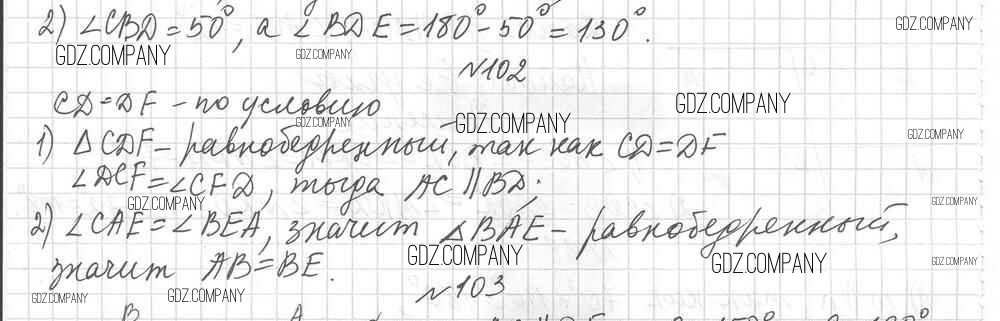 2) ∠CBD = 50°, а ∠BDE = 180° - 50° = 130°.
GDZ.COMPANY GDZ.COMPANY GDZ.COMPANY
№102
CD = DF - по условию
GDZ.COMPANY GDZ.COMPANY GDZ.COMPANY
1) △CDF - равнобедренный, так как CD = DF
GDZ.COMPANY
∠DCF = ∠CFD, тогда AC || BD;
GDZ.COMPANY GDZ.COMPANY
2) ∠CAE = ∠BEA, значит △BAE - равнобедренный,
значит AB = BE.
GDZ.COMPANY GDZ.COMPANY GDZ.COMPANY
№103
GDZ.COMPANY GDZ.COMPANY